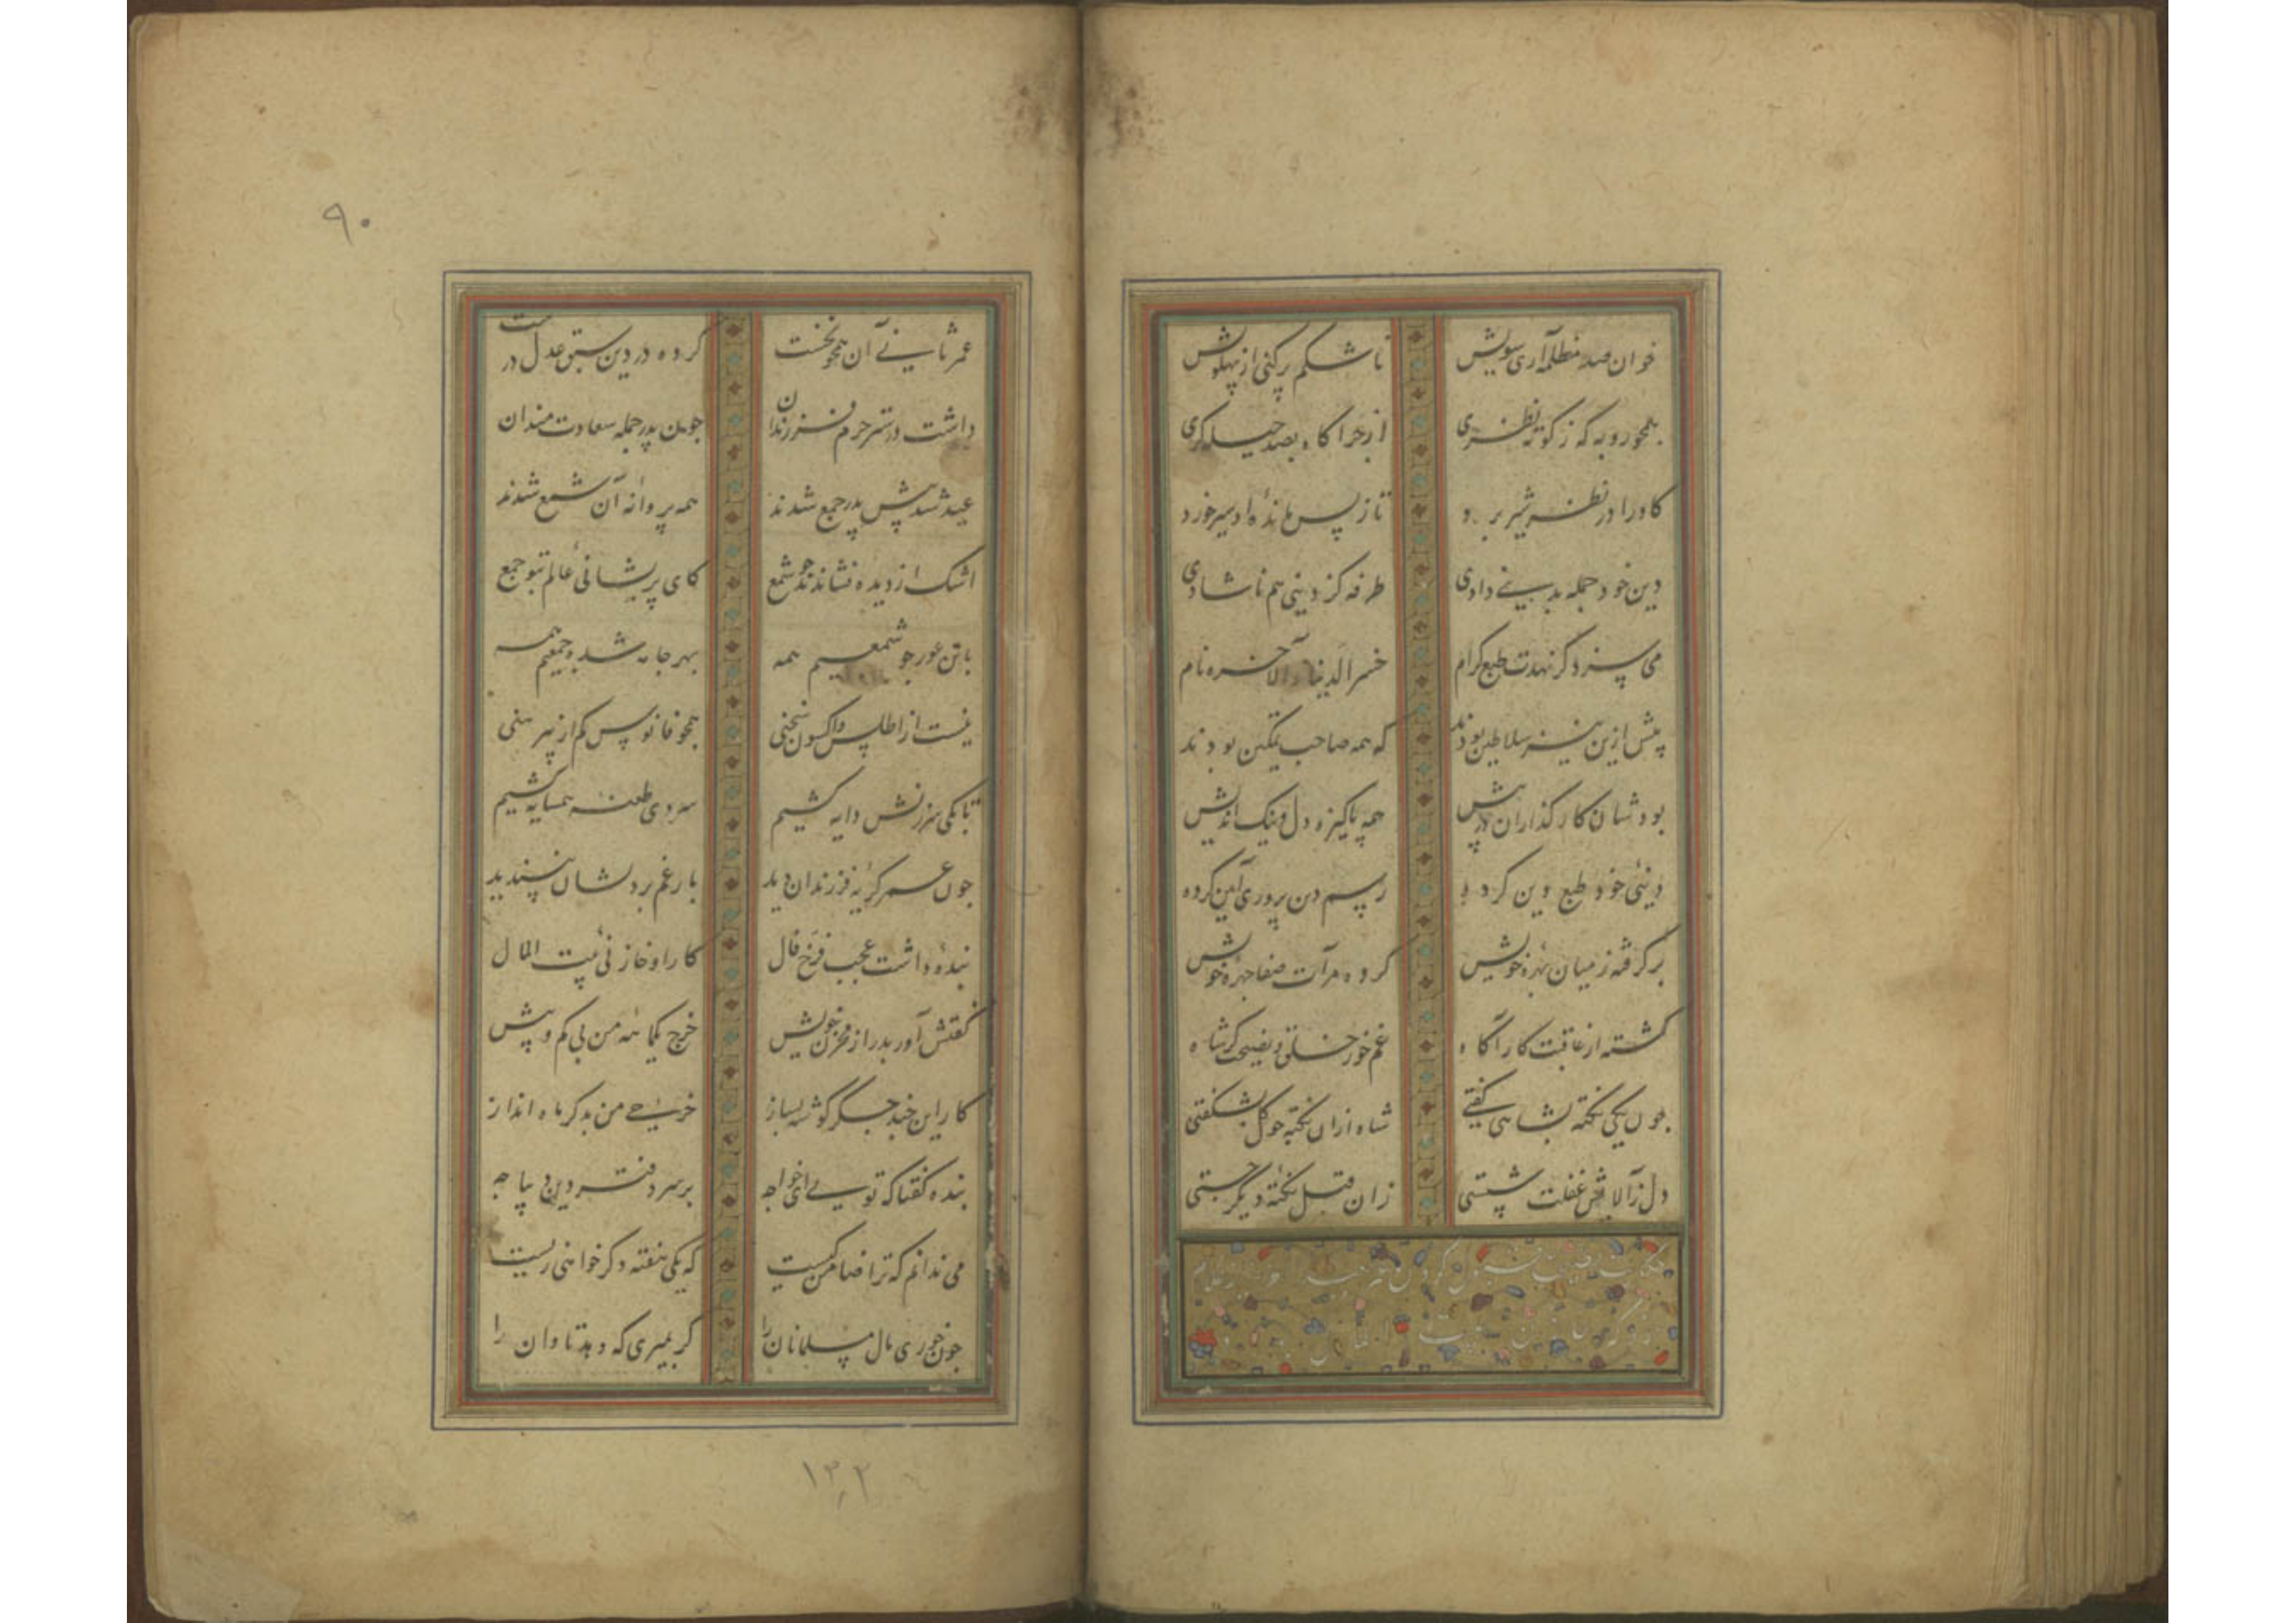 خوان صد مظلمه آری سویش تا شکم پر کنی از پهلویش
همچو روبه که ز کوته نظری از چرا گاه بصد حیله گری
کاو را در نظر شیر برد تا ز پس مانده او سیر خورد
دین خود جمله بدینی دادی طرفه کز دینی هم ناشادی
می سزد گر نهدت طبع کرام خسر الدنیا و الآخره نام
پیش ازین نیز سلاطین بودند که همه صاحب تمکین بودند
بودشان کار گذاران در پیش همه پاکیزه دل و نیک اندیش
دینی خود طبع دین کرده رسم دین پروری آیین کرده
بر گرفته ز میان بهره خویش کرده مرآت صفا چهره خویش
گشته از عاقبت کار آگاه غم خور خلق و نصیحت گر شاه
چون یکی نکته بشاهی گفتی شاه از ان نکته چو گل بشگفتی
دل ز آلایش غفلت شستی زان قبل نکته دیگر جستی
حکایت
بیت المال
۹۰
عمر ثانی آن همچو نخست کرده در دین سبق عدل درست
داشت در ستر حرم فرزندان چون پدر جمله سعادت مندان
عید شد پیش پدر جمع شدند همه پروانه آن شمع شدند
اشک از دیده فشاندند چو شمع کای پریشانی عالم بتو جمع
با تن عور چو شمعیم همه بهر جامه شده جمعیم همه
نیست از اطلس و اکسون سخنی همچو فانوس کم از پیرهنی
تا بکی سرزنش دایه کشیم سردی طعنه همسایه کشیم
چون عمر گریه فرزندان دید بار غم بر دلشان نپسندید
بنده داشت عجب فرخ فال کار او خازنی بیت المال
گفتش آور بدر از مخزن خویش خرج یکماهه من بی کم و بیش
کار این چند جگر گوشه بساز خرجی من بدگر ماه انداز
بنده گفتا که تویی ای خواجه بر سر دفتر دین دیباجه
می ندانم که ترا ضامن کیست که یکی هفته دگر خواهی زیست
چون خوری مال مسلمانان را گر بمیری که دهد تاوان را
۱۳۲